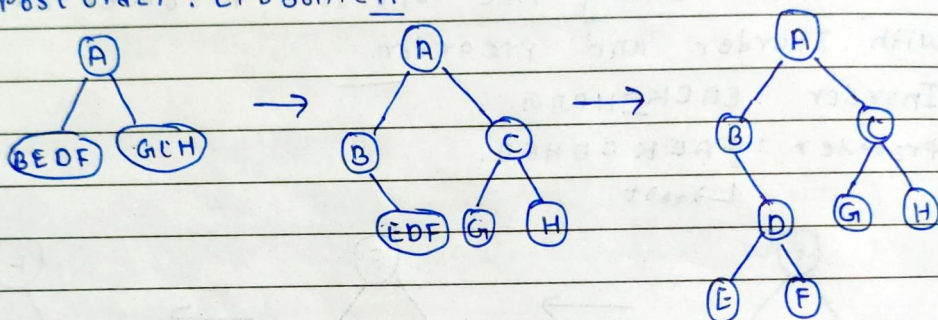 A
BEDF GCH
→
A
B C
EDF G H
→
A
B C
D G H
E F